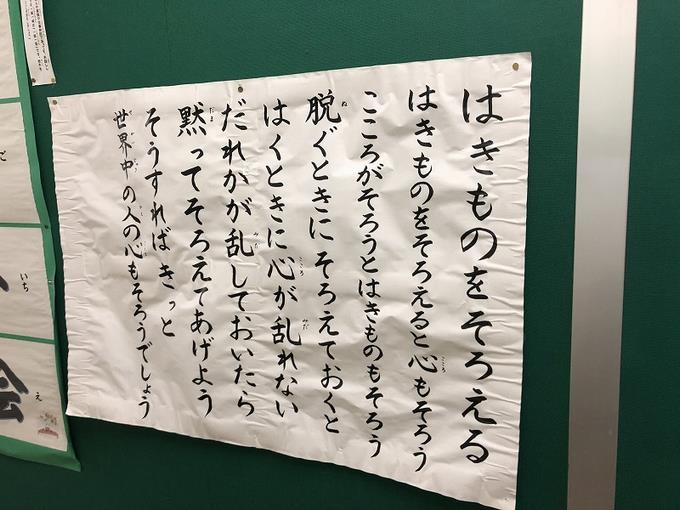 はきものをそろえる
はきものをそろえると心もそろう
こころがそろうとはきものもそろう
脱ぐときにそろえておくと
はくときに心が乱れない
だれかが乱しておいたら
黙ってそろえてあげよう
そうすればきっと
世界中の人の心もそろうでしょう
ご
いち
会
え